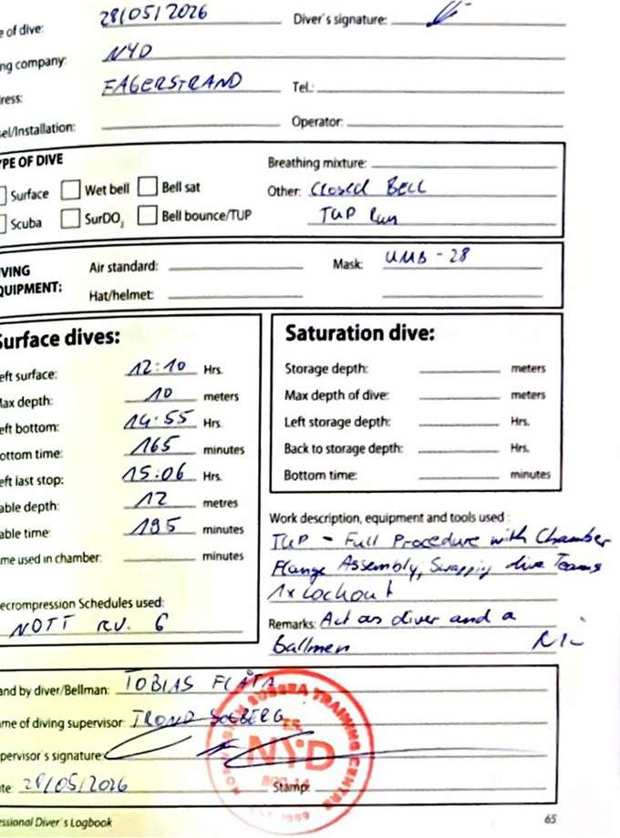 e of dive: 28/05/2026 Diver's signature:
ng company: NYD
ress: FAGERSTRAND Tel.:
sel/Installation: Operator:
PE OF DIVE Breathing mixture:
Surface Wet bell Bell sat Other: Closed Bell
Scuba SurDO2 Bell bounce/TUP TUP Run
VING EQUIPMENT: Air standard: Mask: UMB-28
Hat/helmet:
urface dives:
eft surface: 12:10 Hrs.
ax depth: 10 meters
eft bottom: 14:55 Hrs.
ottom time: 165 minutes
eft last stop: 15:06 Hrs.
able depth: 12 metres
able time: 195 minutes
me used in chamber: minutes
ecrompression Schedules used:
NDTT RV. 6
Saturation dive:
Storage depth: meters
Max depth of dive: meters
Left storage depth: Hrs.
Back to storage depth: Hrs.
Bottom time: minutes
Work description, equipment and tools used :
TUP - Full Procedure with Chamber
Flange Assembly, Swapping dive Teams
1x Lockout
Remarks: Act as diver and a
ballmen
and by diver/Bellman: TOBIAS FLÅTA
me of diving supervisor: TROND SOLBERG
pervisor's signature:
te: 28/05/2026 Stamp:
NYD
essional Diver's Logbook 65